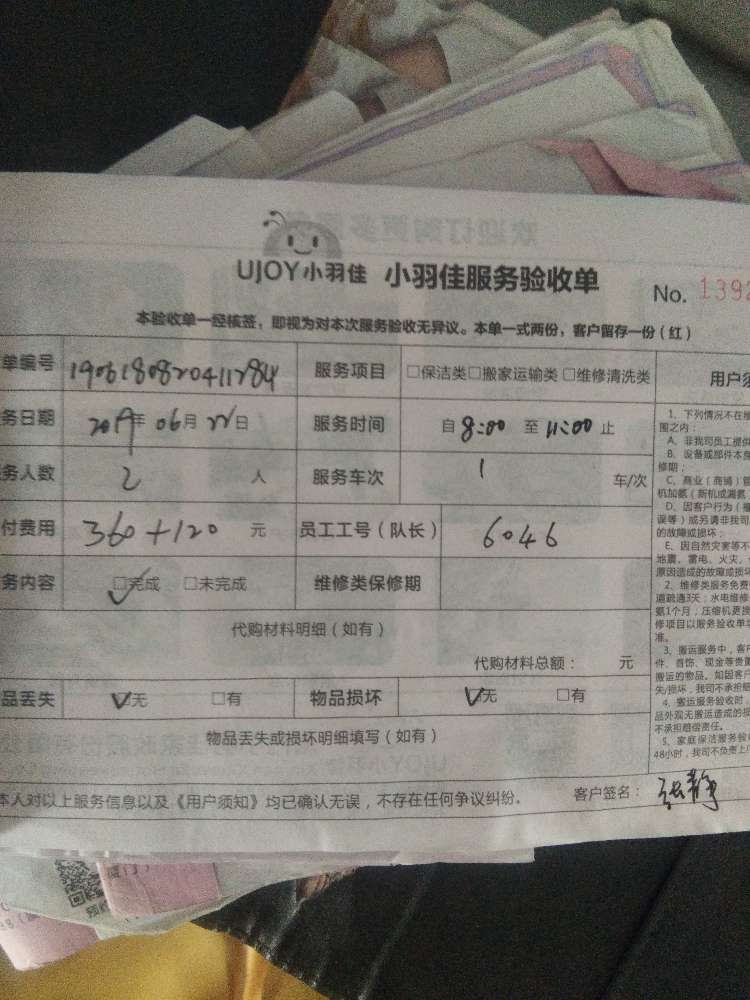 UJOY小羽佳 小羽佳服务验收单
No. 1392
本验收单一经核签，即视为对本次服务验收无异议。本单一式两份，客户留存一份（红）
单编号 1906180820411284 服务项目 □保洁类□搬家运输类 □维修清洗类
务日期 2019年 06月 22日 服务时间 自 8:00 至 11:00 止
务人数 2 人 服务车次 1 车/次
付费用 360+120 元 员工工号（队长） 6046
务内容 □完成 □未完成 维修类保修期
代购材料明细（如有）
代购材料总额： 元
品丢失 □无 □有 物品损坏 □无 □有
物品丢失或损坏明细填写（如有）
本人对以上服务信息以及《用户须知》均已确认无误，不存在任何争议纠纷。 客户签名： 张静
用户须
1、下列情况不在
围之内：
A、非我司员工提供
B、设备或部件本身
修期；
C、商业（商铺）
机加氨（新机或漏氨
D、因客户行为（
误等）或另请非我司
的故障或损坏；
E、因自然灾害等不
地震、雷电、火灾、
原因造成的故障或损坏
2、维修类服务免费
道疏通3天；水电维修
氨1个月，压缩机更换
修项目以服务验收单
准。
3、搬运服务中，客户
件、首饰、现金等贵重
搬运的物品。如因客户
失/损坏，我司不承担赔
4、搬运服务验收时，
品外观无搬运造成的损
不承担赔偿责任。
5、家庭保洁服务验收
48小时，我司不负责上